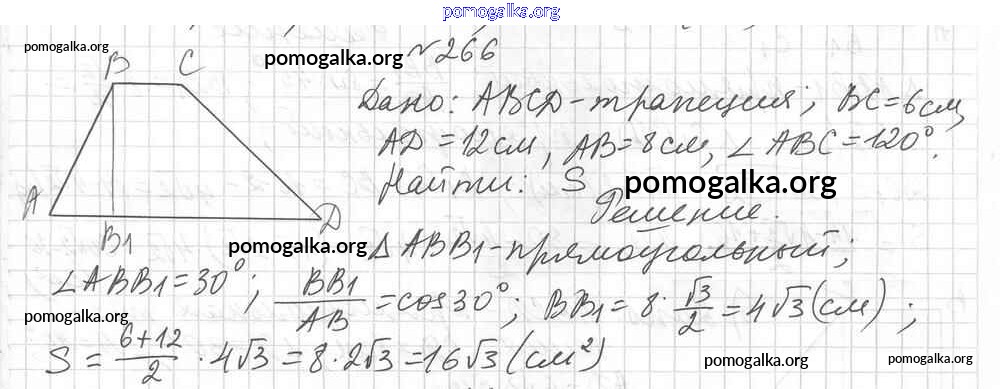 pomogalka.org
pomogalka.org
№266
pomogalka.org
B C
Дано: ABCD-трапеция; BC=6см,
AD=12см, AB=8см, ∠ABC=120°.
Найти: S
pomogalka.org
A D
B1
Решение.
pomogalka.org
ΔABB1-прямоугольный;
∠ABB1=30°; BB1/AB=cos30°; BB1=8·√3/2=4√3(см);
pomogalka.org
S=6+12/2·4√3=8·2√3=16√3(см²)
pomogalka.org
pomogalka.org